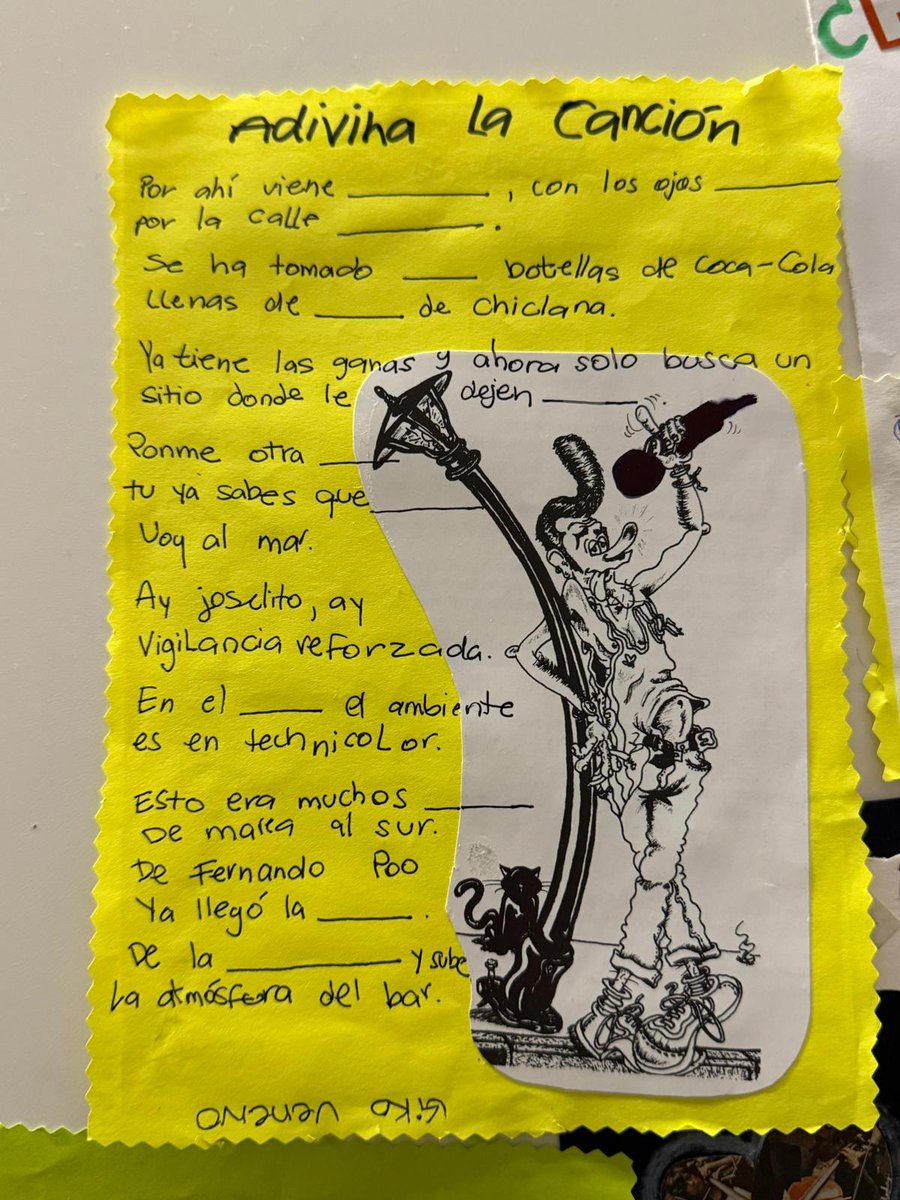 Adivina La Canción
Por ahí viene ________, con los ojos ________
por la calle ________.
Se ha tomado ____ botellas de Coca-Cola
LLenas de ____ de Chiclana.
Ya tiene las ganas y ahora solo busca un
sitio donde le dejen ____
Ponme otra ____
tu ya sabes que ____
Voy al mar.
Ay joselito, ay
VigiLancia reforzada.
En el ____ el ambiente
es en technicoLor.
Esto era muchos ____
De marea al sur.
De Fernando Poo
Ya llegó la ____.
De la ________ y sube
La atmósfera del bar.
Kiko Veneno